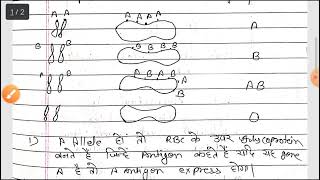 1 / 2
A A A A A A A
B B B B B B B
A B A B A B B AB
O
1) A Allele हो तो RBC के उपर glycoprotein
बनते है जिन्हें Antigen कहते है यदि यह gene
A है तो A antigen express होगा।